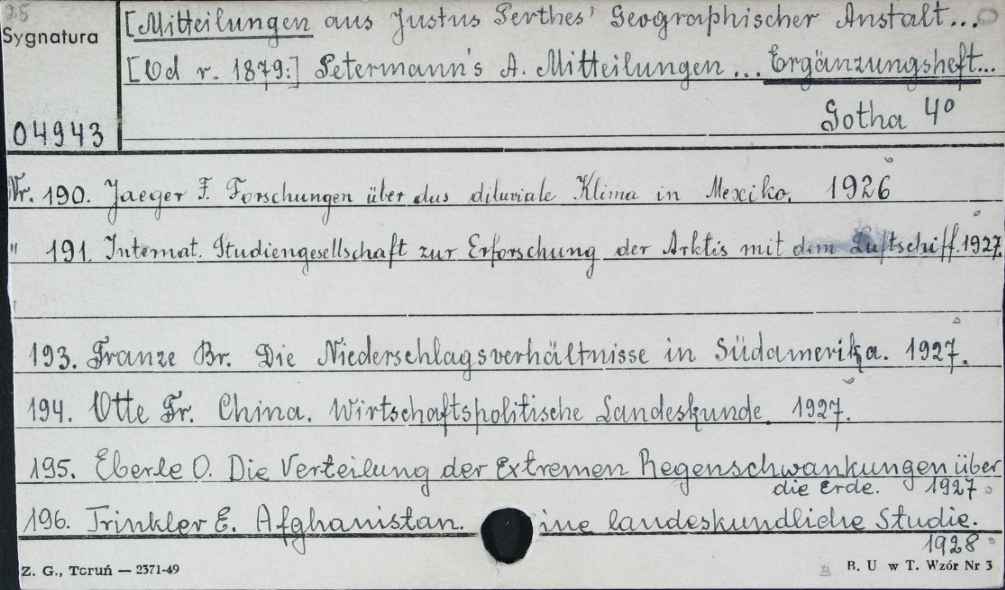 25
Sygnatura
04943
[Mitteilungen aus Justus Perthes' Geographischer Anstalt...
[Od r. 1879:] Petermann's A. Mitteilungen ... Ergänzungsheft...
Gotha 4°
Nr. 190. Jaeger F. Forschungen über das diluviale Klima in Mexiko. 1926
" 191. Internat. Studiengesellschaft zur Erforschung der Arktis mit dem Luftschiff. 1927.
193. Franze Br. Die Niederschlagsverhältnisse in Südamerika. 1927.
194. Otte Fr. China. Wirtschaftspolitische Landeskunde. 1927.
195. Eberle O. Die Verteilung der Extremen Regenschwankungen über
die Erde. 1927
196. Trinkler E. Afghanistan. ine landeskundliche Studie.
1928
Z. G., Toruń — 2371-49
B. U w T. Wzór Nr 3